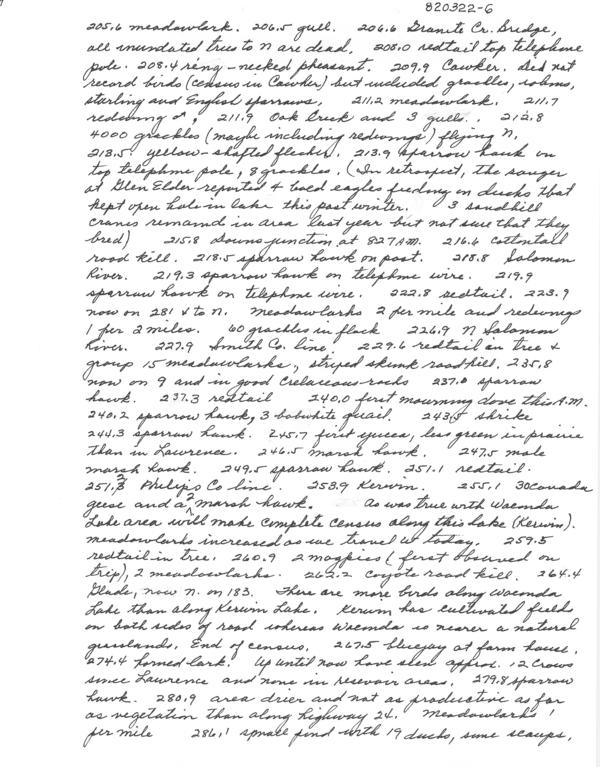 820322-6
205.6 meadowlark. 206.5 gull. 206.6 Granite Cr. Bridge,
all inundated trees to N are dead. 208.0 redtail top telephone
pole. 208.4 ring-necked pheasant. 209.9 Cawker. Did not
record birds (census in Cawker) but included grackles, robins,
starling and English sparrows. 211.2 meadowlark. 211.7
redwing ♂, 211.9 Oak Creek and 3 gulls. 212.8
4000 grackles (maybe including redwings) flying N.
213.5 yellow-shafted flicker. 213.9 sparrow hawk on
top telephone pole, 8 grackles. (In retrospect, the ranger
at Glen Elder reported 4 bald eagles feeding on ducks that
kept open hole in lake this past winter. 3 sandhill
cranes remained in area last year but not sure that they
bred) 215.8 Downs junction at 827 A.M. 216.6 cottontail
road kill. 218.5 sparrow hawk on post. 218.8 Solomon
River. 219.3 sparrow hawk on telephone wire. 219.9
sparrow hawk on telephone wire. 222.8 redtail. 223.9
now on 281 & to N. Meadowlarks 2 per mile and redwings
1 per 2 miles. 60 grackles in flock 226.9 N Solomon
River. 227.9 Smith Co. line. 229.6 redtail in tree &
group 15 meadowlarks, striped skunk road kill. 235.8
now on 9 and in good Cretaceous rocks 237.0 sparrow
hawk. 237.3 redtail 240.0 first mourning dove this A.M.
240.2 sparrow hawk, 3 bobwhite quail. 243.5 shrike
244.3 sparrow hawk. 245.7 first yucca, less green in prairie
than in Lawrence. 246.5 marsh hawk. 247.5 male
marsh hawk. 249.5 sparrow hawk. 251.1 redtail.
251.2 Philips Co line. 253.9 Kerwin. 255.1 30 Canada
geese and a 2 marsh hawk. As was true with Waconda
Lake area will make complete census along this lake (Kerwin).
Meadowlarks increased as we travel W today. 259.5
redtail in tree. 260.9 2 magpies (first observed on
trip), 2 meadowlarks. 262.2 coyote road kill. 264.4
Glade, now N. on 183. There are more birds along Waconda
Lake than along Kerwin Lake. Kerwin has cultivated field
on both sides of road whereas Waconda is nearer a natural
grasslands. End of census. 267.5 bluejay at farm house.
274.4 horned lark. Up until now have seen approx. 12 crows
since Lawrence and none in resevoir areas. 279.8 sparrow
hawk. 280.9 area drier and not as productive as far
as vegetation than along highway 24. Meadowlarks 1
per mile 286.1 small pond with 19 ducks, some scaups,